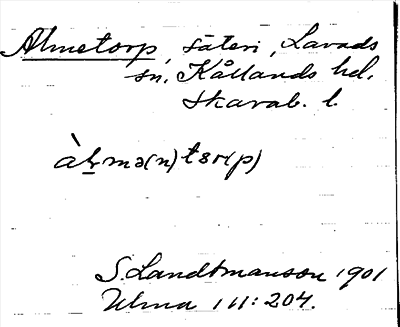 Almetorp, säteri, Lavads
sn, Kållands hd,
Skarab. l.
S. Landtmanson 1901
Ulma 111: 204.